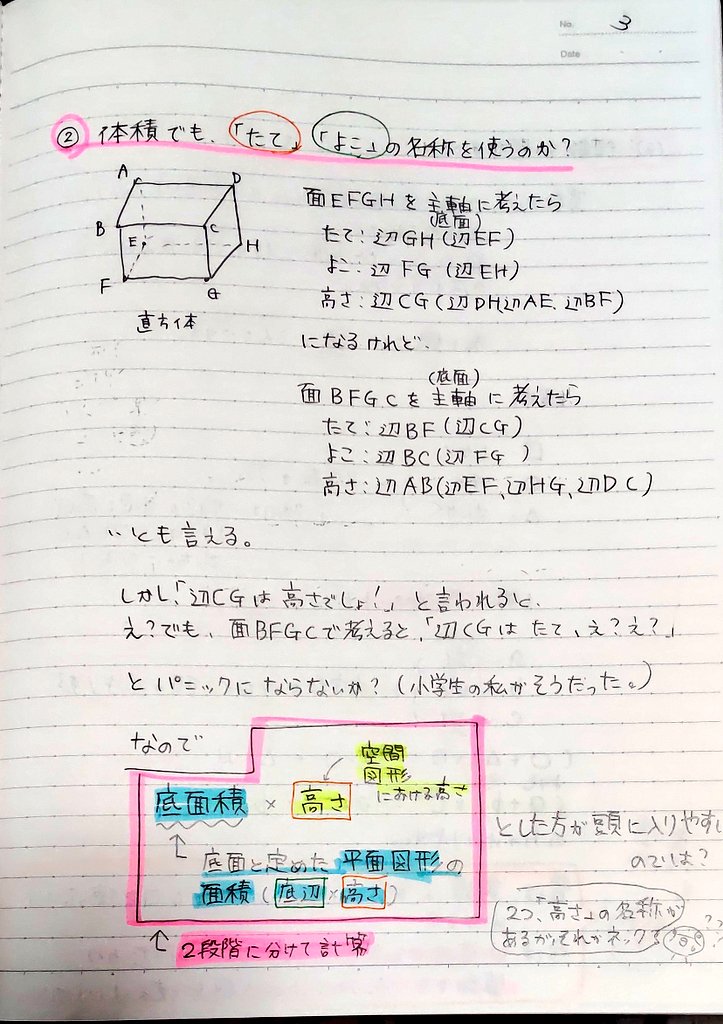 No. 3
Date
② 体積でも、「たて」「よこ」の名称を使うのか?
A
D
B
C
E
H
F
G
直方体
面EFGHを主軸に考えたら
(底面)
たて:辺GH(辺EF)
よこ:辺FG(辺EH)
高さ:辺CG(辺DH、辺AE、辺BF)
になるけれど、
(底面)
面BFGCを主軸に考えたら
たて:辺BF(辺CG)
よこ:辺BC(辺FG)
高さ:辺AB(辺EF、辺HG、辺DC)
…とも言える。
しかし「辺CGは高さでしょ!」と言われると、
え?でも、面BFGCで考えると、「辺CGはたて、え?え?」
とパニックにならないか?(小学生の私がそうだった。)
なので
空間
図形
における高さ
底面積 × 高さ
底面と定めた平面図形の
面積(底辺×高さ)
とした方が頭に入りやすい
のでは?
↑2段階に分けて計算
2つ「高さ」の名称が
あるがそれがネック?
??